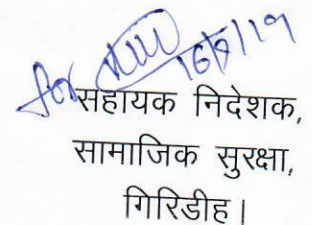 for
16/9/19
सहायक निदेशक,
सामाजिक सुरक्षा,
गिरिडीह।